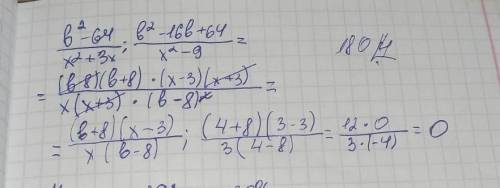 в²-64/x²+3x ; в²-16в+64/x²-9 =
180
= (в-8)(в+8)·(x-3)(x+3)/x(x+3)·(в-8)² =
= (в+8)(x-3)/x(в-8) ; (4+8)(3-3)/3(4-8) = 12·0/3·(-4) = 0